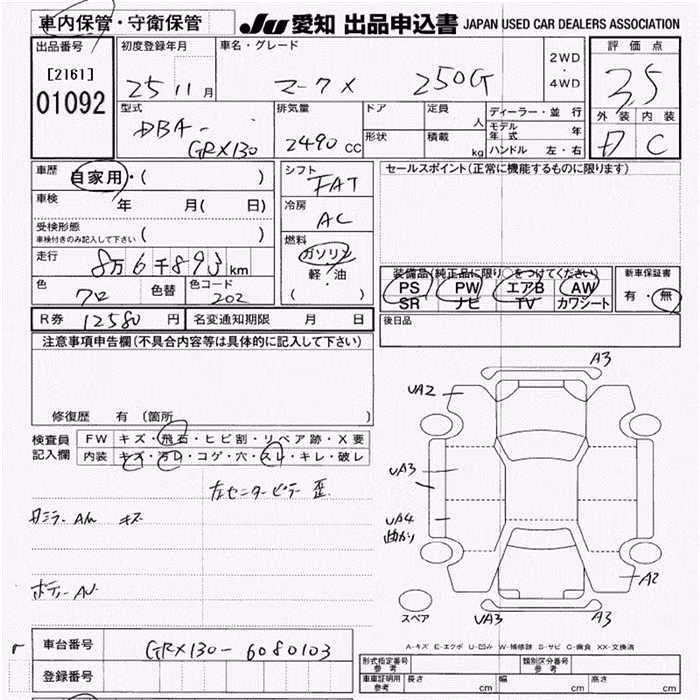 車内保管・守衛保管
JU 愛知 出品申込書 JAPAN USED CAR DEALERS ASSOCIATION
出品番号
[2161]
01092
初度登録年月
25 11 月
車名・グレード
マークX 250G
2WD
・
4WD
評価点
3.5
外装 内装
D C
型式
DBA-
GRX130
排気量
2490 CC
ドア
形状
定員
人
積載
kg
ディーラー・並行
モデル年式 年
ハンドル 左・右
車歴
自家用・( )
車検
年 月( 日)
受検形態
車検付きのみ記入して下さい ( )
走行
8万6千893 km
色
クロ
色替
色コード
202
シフト
FAT
冷房
AC
燃料
ガソリン
軽・油
( )
セールスポイント(正常に機能するものに限ります)
装備品(純正品に限り○をつけてください)
PS PW エアB AW
SR ナビ TV カワシート
新車保証書
有・無
R券 12580 円
名変通知期限 月 日
後日品
注意事項申告欄(不具合内容等は具体的に記入して下さい)
修復歴 有 (箇所 )
検査員
記入欄
FW キズ・飛石・ヒビ割・リペア跡・X要
内装 キズ・汚レ・コゲ・穴・スレ・キレ・破レ
左センターピラー 歪
キズ
A3
UA2
UA3
UA4
A2
UA3
A3
スペア
A-キズ E-エクボ U-凹み W-補修跡 S-サビ C-腐食 XX-交換済
車台番号
GRX130-6080103
登録番号
形式指定番号
参考
類別区分番号
参考
車庫証明用
参考
長さ cm
幅 cm
高さ cm